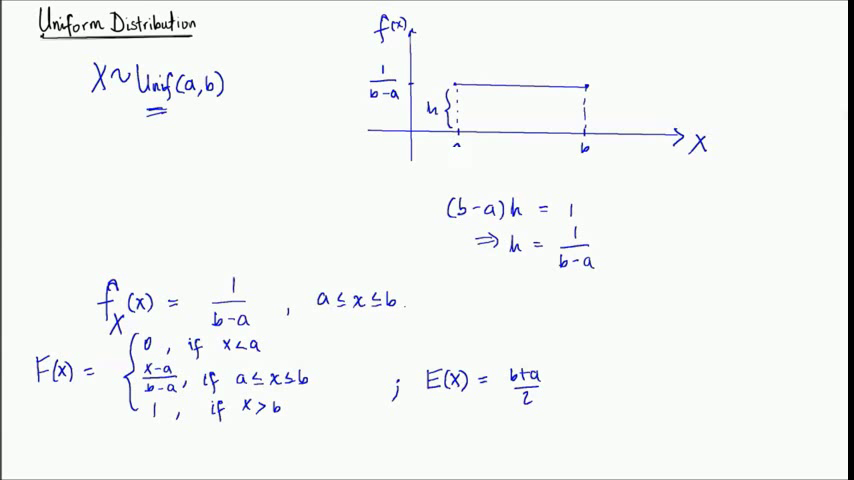 Uniform Distribution
X ~ Unif(a,b)
f(x)
1/(b-a)
h {
a b X
(b-a)h = 1
⇒ h = 1/(b-a)
f_X(x) = 1/(b-a) , a ≤ x ≤ b.
F(x) = { 0 , if x < a
(x-a)/(b-a), if a ≤ x ≤ b
1 , if x > b
; E(X) = (b+a)/2